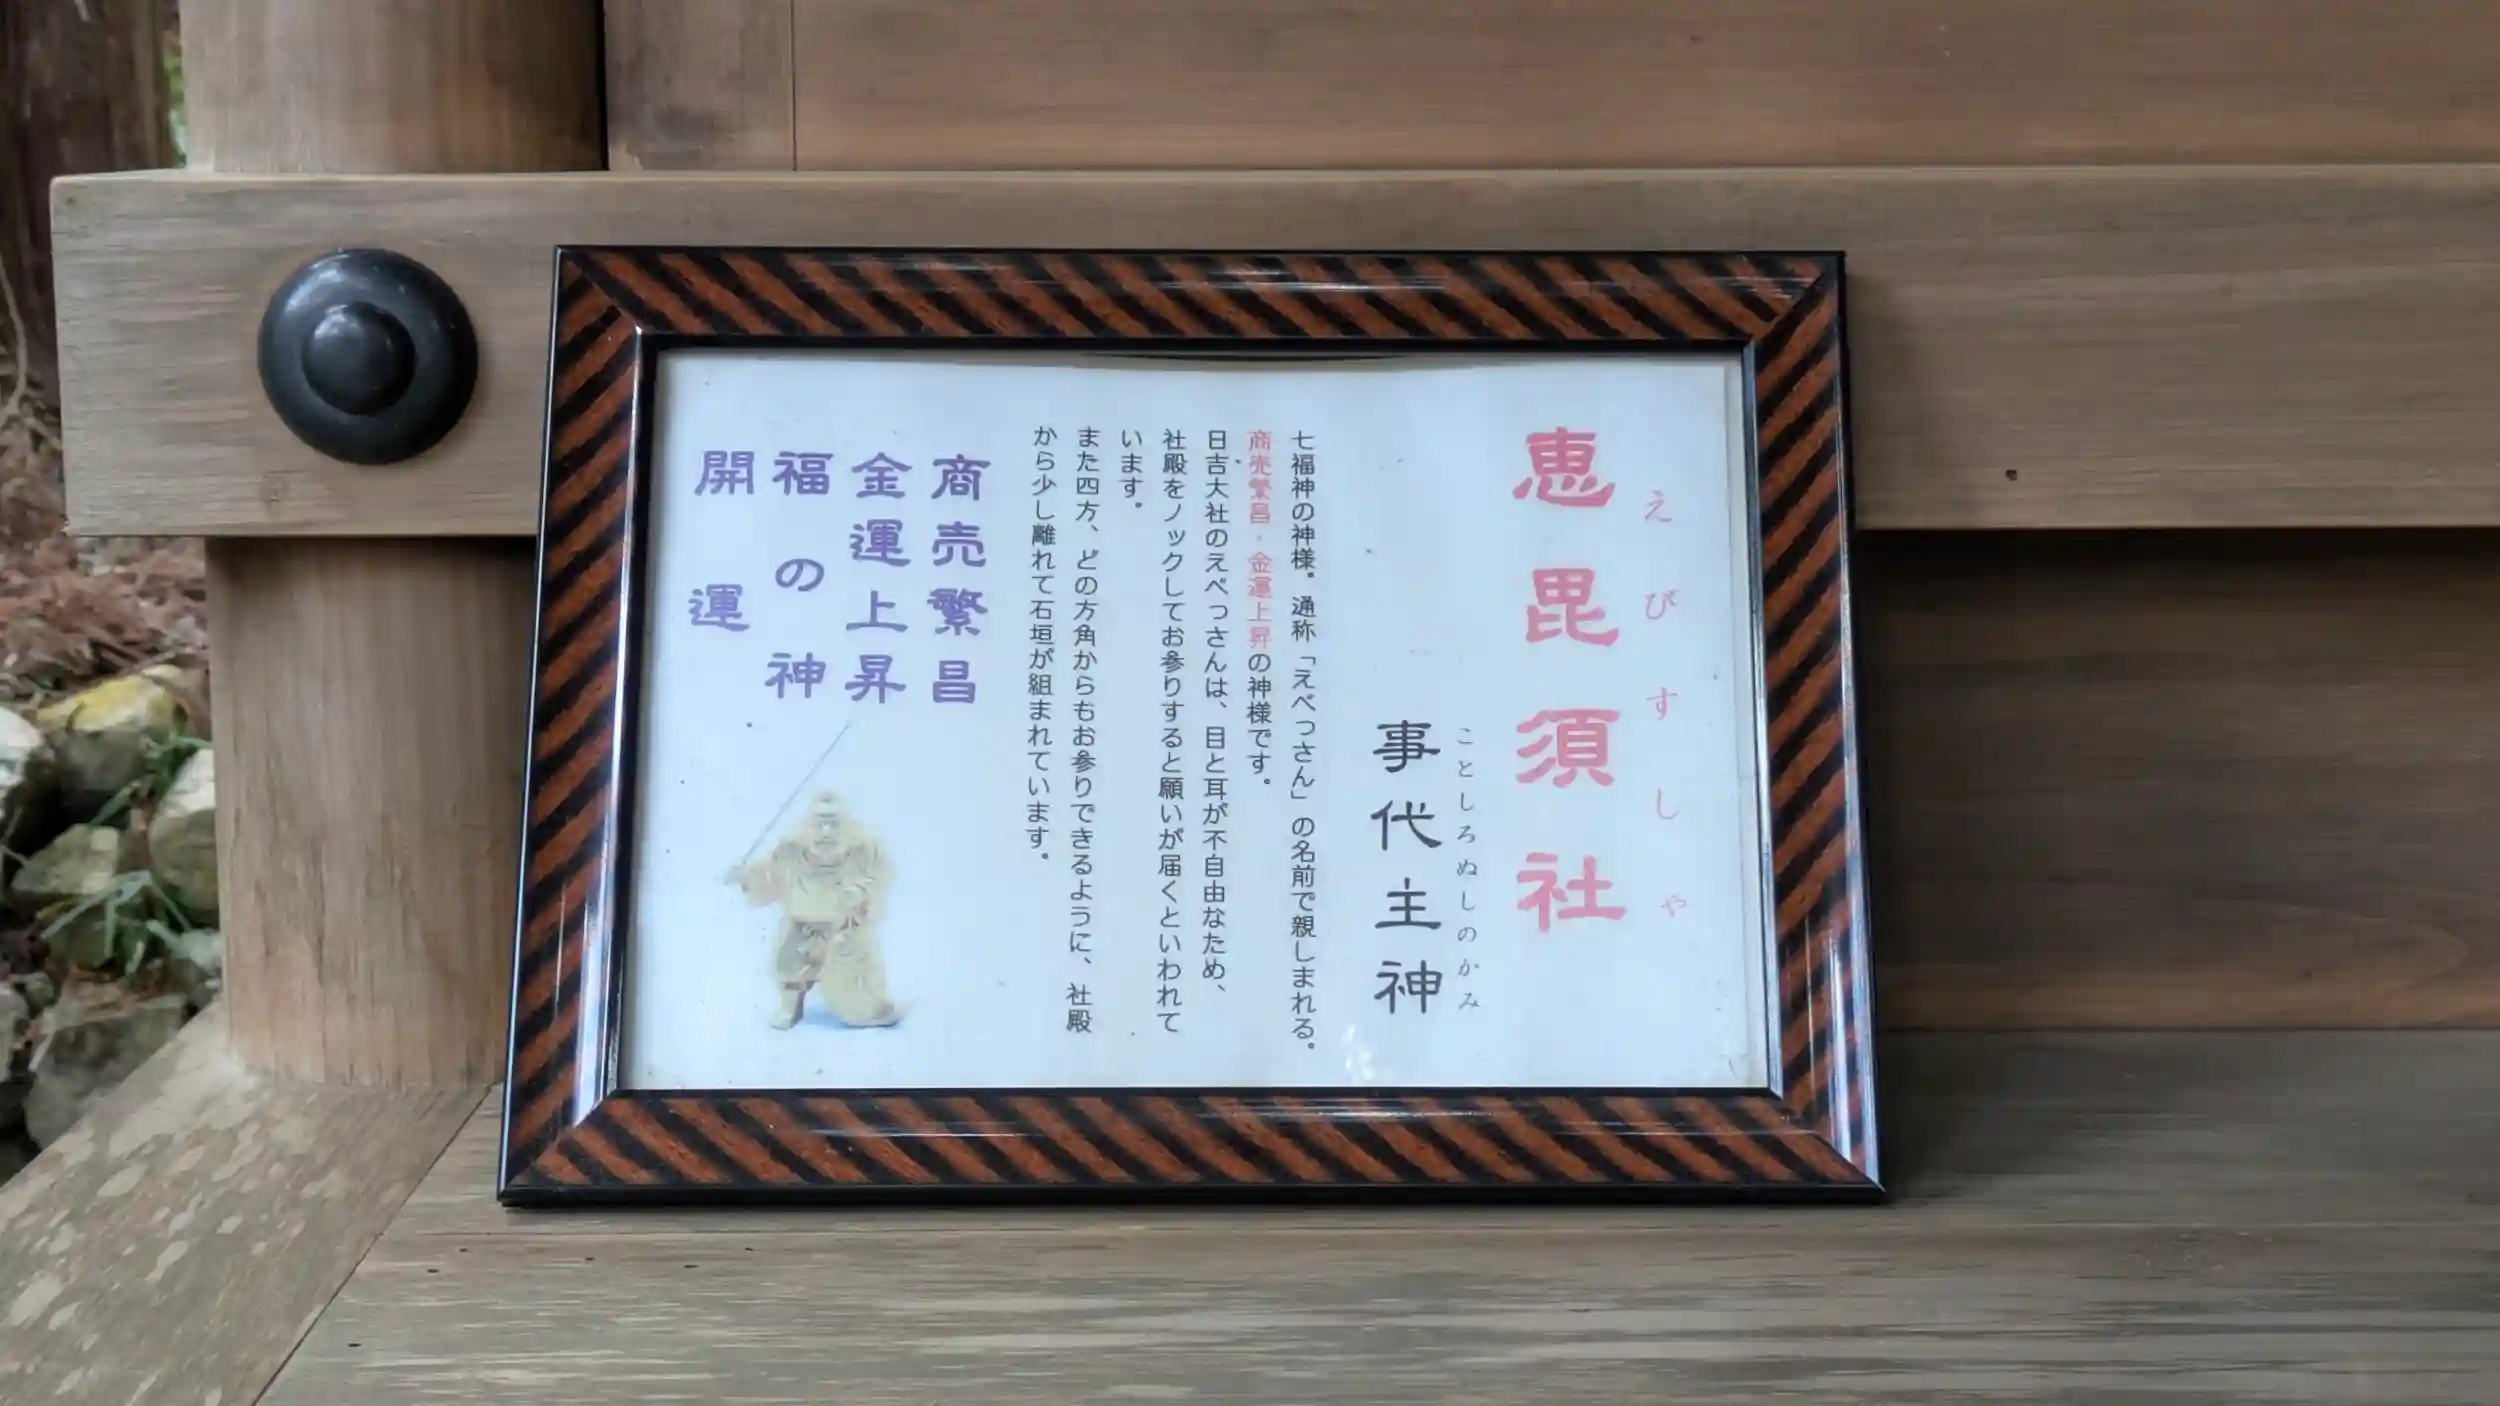 えびすしゃ
恵毘須社
ことしろぬしのかみ
事代主神
七福神の神様。通称「えべっさん」の名前で親しまれる。
商売繁昌・金運上昇の神様です。
日吉大社のえべっさんは、目と耳が不自由なため、
社殿をノックしてお参りすると願いが届くといわれて
います。
また四方、どの方角からもお参りできるように、社殿
から少し離れて石垣が組まれています。
商売繁昌
金運上昇
福の神
開運